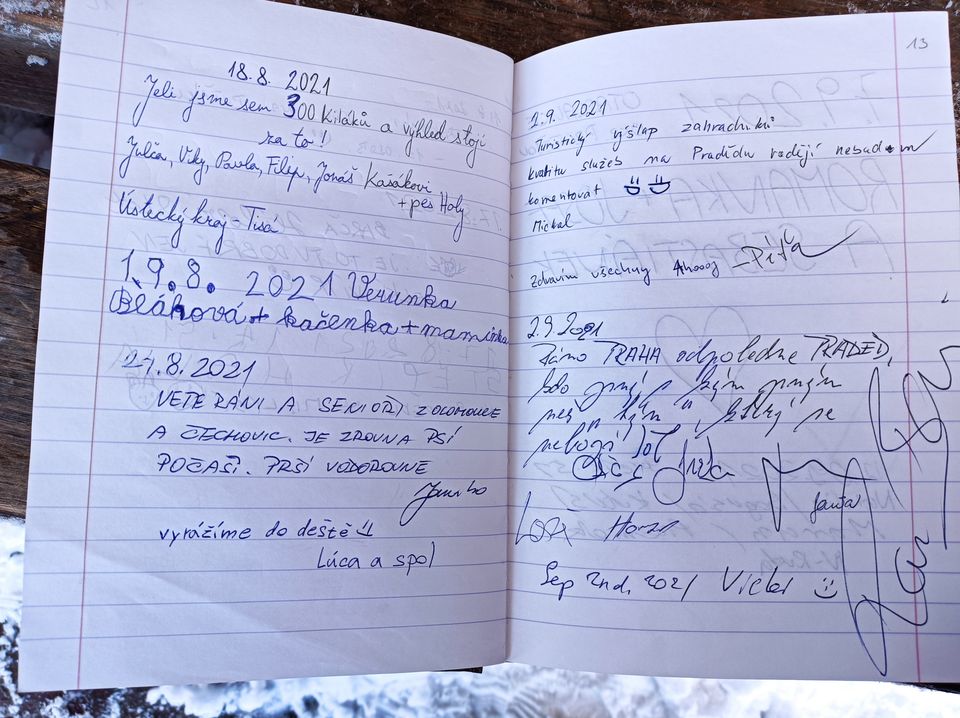 18.8. 2021
Jeli jsme sem 300 kiláků a výhled stojí
za to!
Julča, Viky, Pavla, Filip, Jonáš Kašákovi
+ pes Holy
Ústecký kraj - Tisá
19.8. 2021 Verunka
Bláhová + kačenka + maminka
21.8.2021
VETERÁNI A SENIOŘI Z OLOMOUCE
A ČECHOVIC. JE ZROVNA PSÍ
POČASÍ. PRŠÍ VODOROVNĚ
vyrážíme do deště
Lúca a spol
13
1.9. 2021
Turistický výšlap zahradníků
kvalitu služeb na Pradědu raději nebudem
komentovat
Michal
Zdravím všechny Ahooój - Píťa
2.9 2021
Ráno PRAHA odpoledne PRADĚD,
nebojí
Janža
Sep 2nd, 2021 Victor